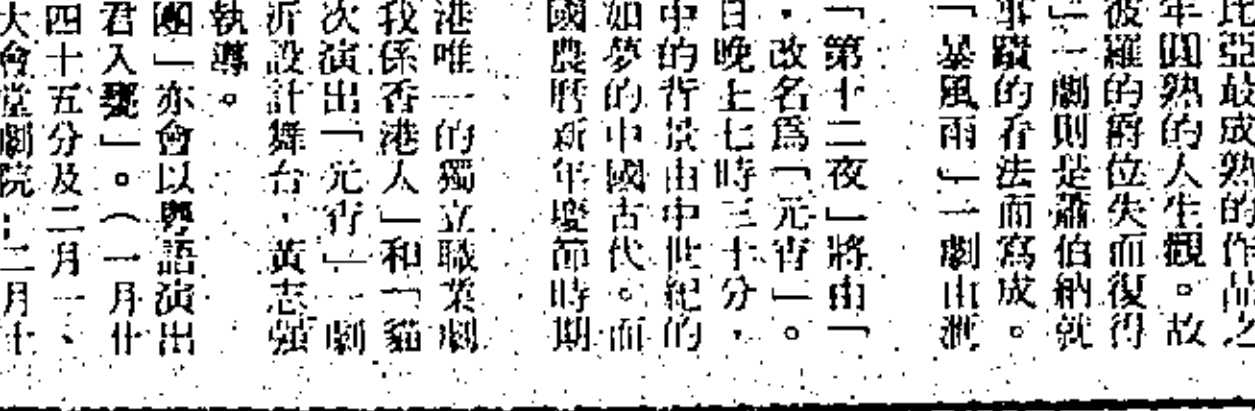 比亞最成熟的作品之
年圓熟的人生觀。故
彼羅的爵位失而復得
」一劇則是蕭伯納就
事蹟的看法而寫成。
「暴風雨」一劇由
「第十二夜」將由「
,改名為「元宵」。
日晚上七時三十分,
中的背景由中世紀的
如夢的中國古代。而
國農曆新年慶節時期
港唯一的獨立職業劇
我係香港人」和「貓
次演出「元宵」一劇
設計舞台,黃志強
執導。
團」亦會以粵語演出
君入甕」。(一月廿
四十五分及二月一、
大會堂劇院;二月十